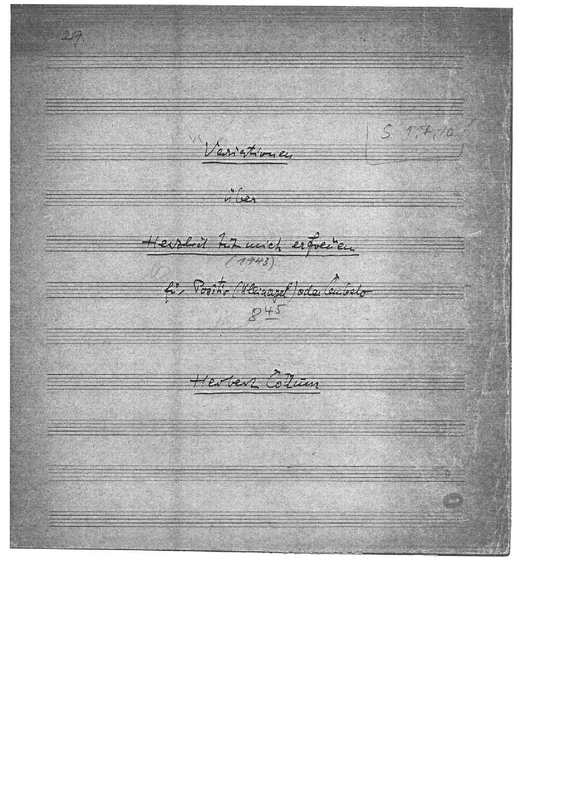 29.
S. 1, 7, 10
Variationen
über
Herzlich tut mich erfreuen
(1943)
für Positiv (Kleinorgel) oder Cembalo
8 45
Herbert Collum